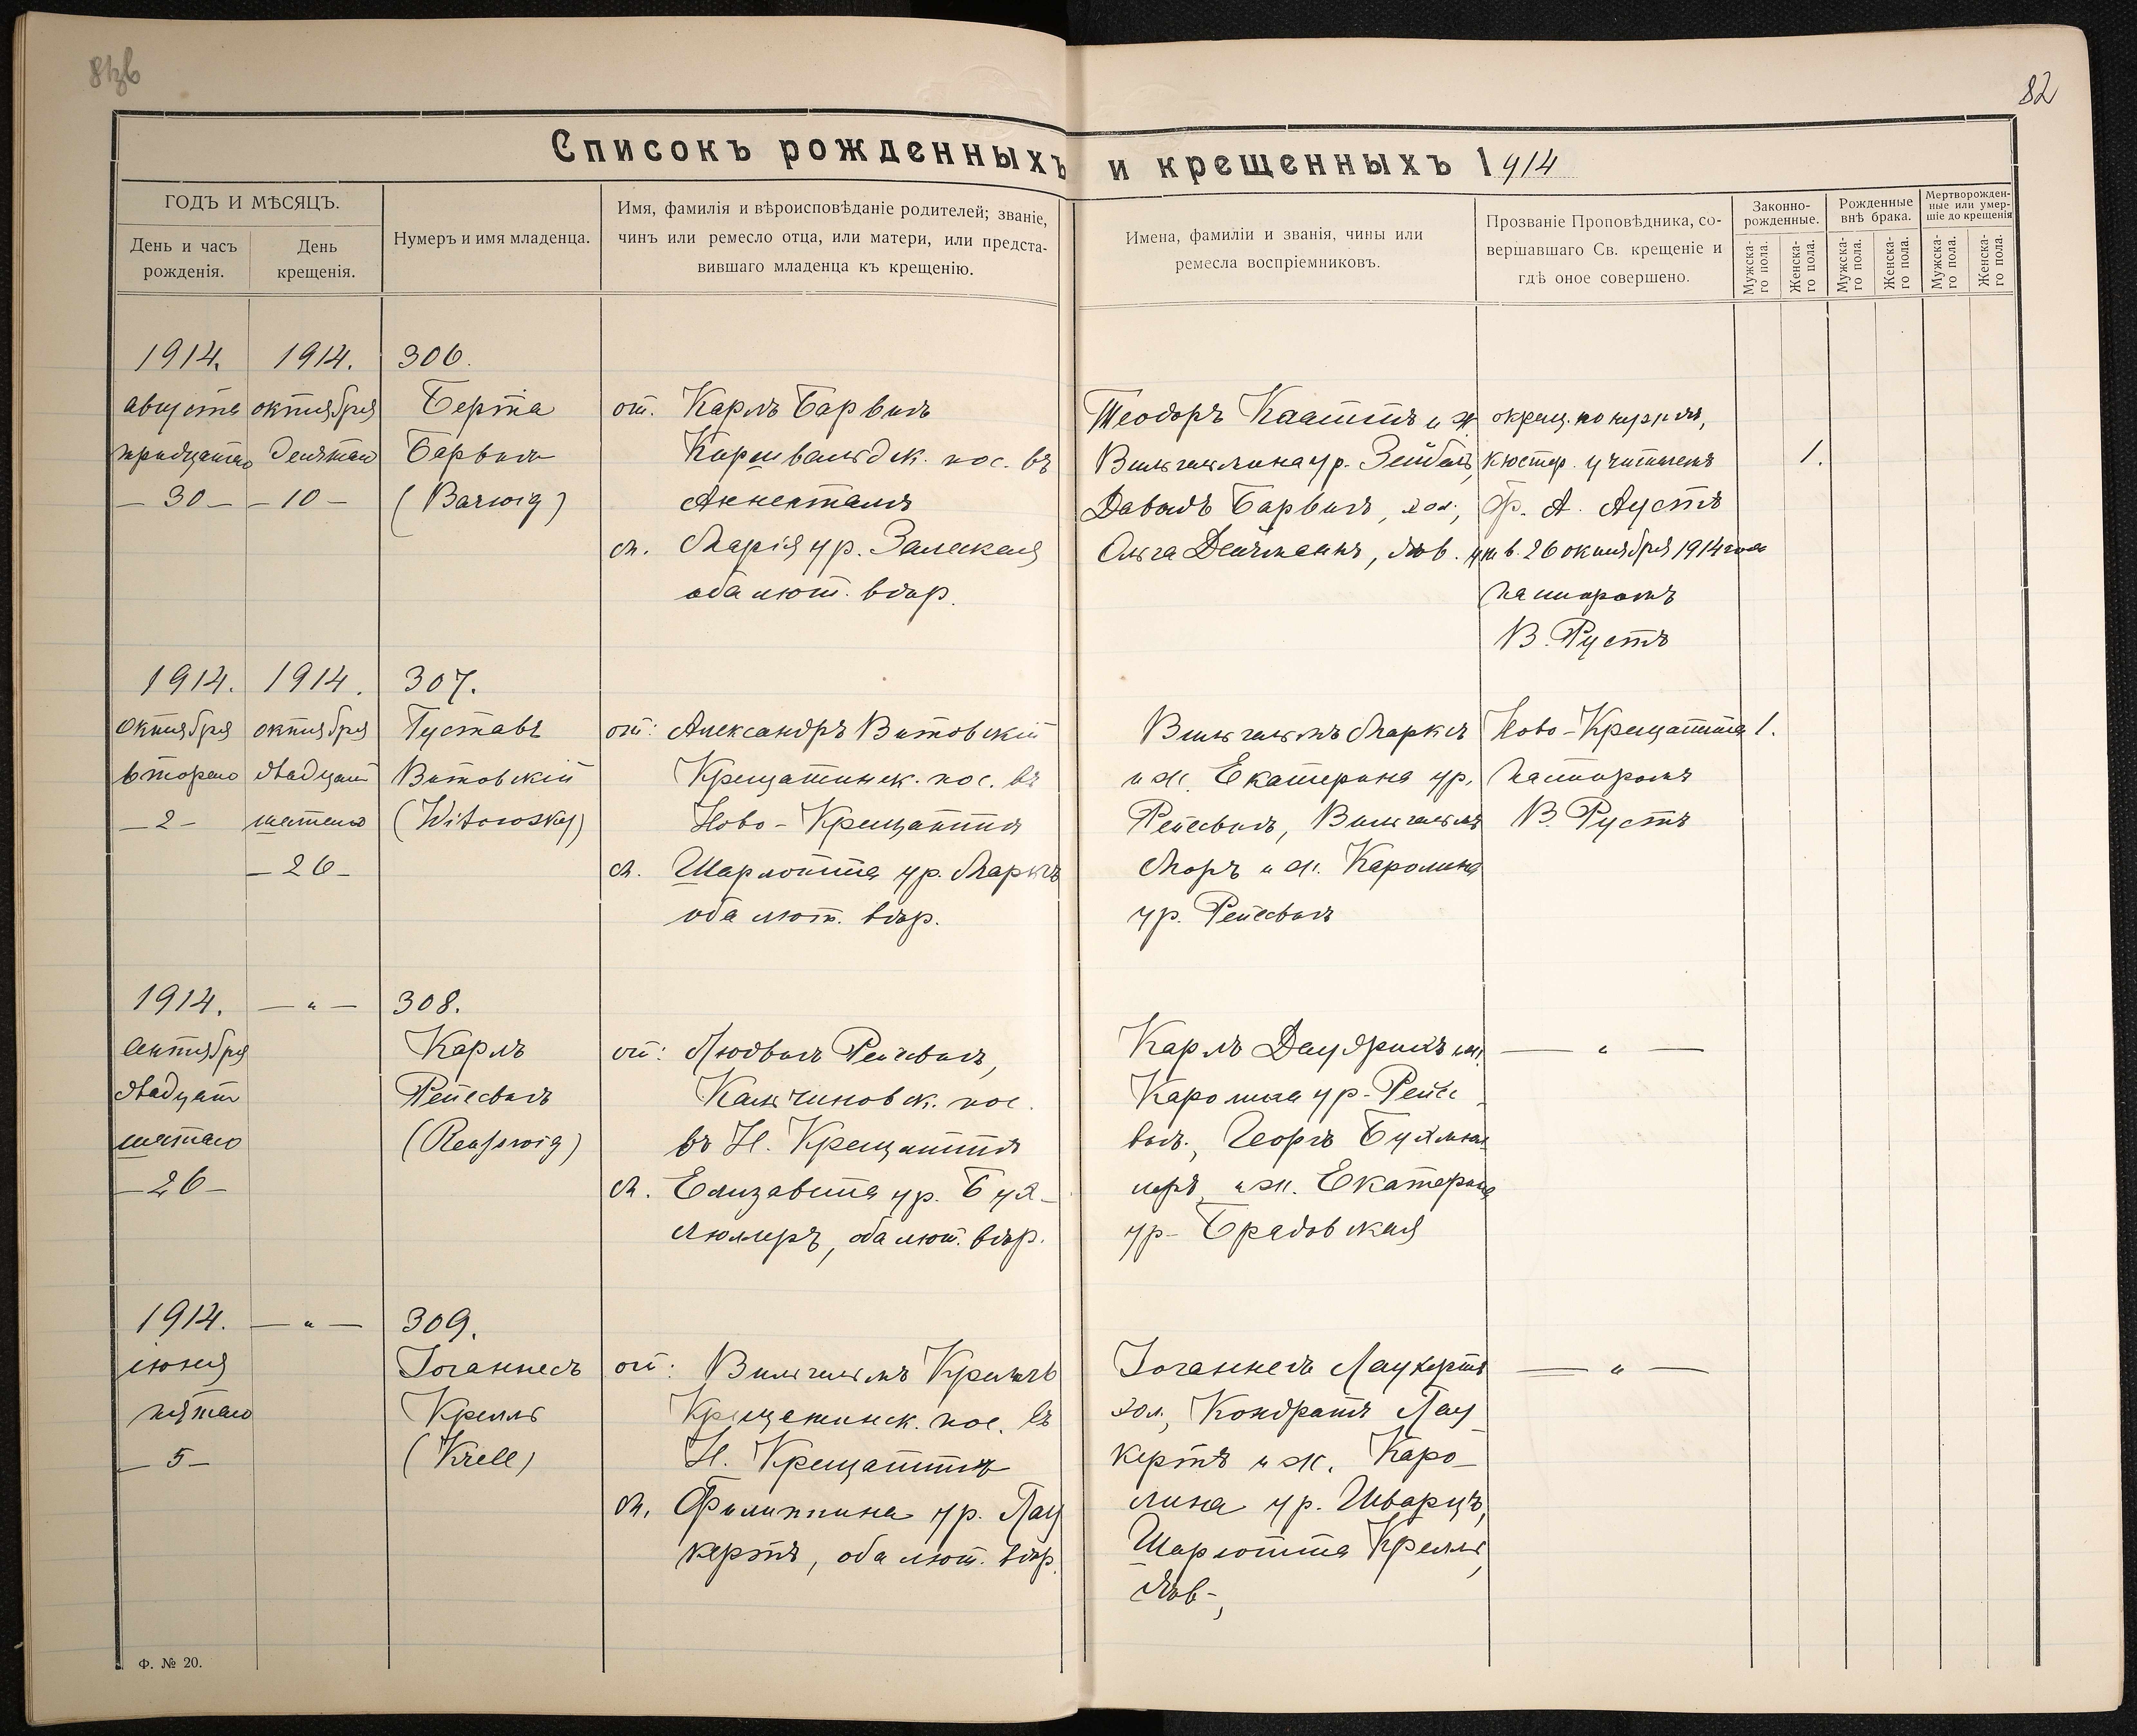 82
Списокъ рожденныхъ и крещенныхъ 1914
ГОДЪ И МѢСЯЦЪ.
День и часъ
рожденія.
День
крещенія.
Нумеръ и имя младенца.
Имя, фамилія и вѣроисповѣданіе родителей; званіе,
чинъ или ремесло отца, или матери, или предста-
вившаго младенца къ крещенію.
Имена, фамиліи и званія, чины или
ремесла воспріемниковъ.
Прозваніе Проповѣдника, со-
вершавшаго Св. крещеніе и
гдѣ оное совершено.
Законно-
рожденные.
Рожденные
внѣ брака.
Мертворожден-
ные или умер-
шіе до крещенія
Мужска-
го пола.
Женска-
го пола.
Мужска-
го пола.
Женска-
го пола.
Мужска-
го пола.
Женска-
го пола.
1914.
августа
тридцатаго
— 30 —
1914.
октября
десятаго
— 10 —
306.
Берта
Барвигъ
(Barwig)
от. Карлъ Барвигъ
пос. въ
Аннентали
м. Марія ур. Залеская
оба лют. вѣр.
Теодоръ и ж
Вильгельмина ур. Зейбель,
Давидъ Барвигъ, хол.,
Ольга , дѣв.
окрещ. по нуждѣ,
кюстер. учителемъ
Ф. А. Аустъ
утв. 26 октября 1914 года
пасторомъ
В. Рустъ
1.
1914.
октября
второго
— 2 —
1914.
октября
двадцать
шестого
— 26 —
307.
Густавъ
Витовскій
(Witowsky)
от: Александръ Витовскій
Крещатинск. пос. въ
Ново-Крещатикъ
м. Шарлотта ур. Марксъ
оба лют. вѣр.
Вильгельмъ Марксъ
и ж. Екатерина ур.
Рейсвигъ, Вильгельмъ
Моръ и ж. Каролина
ур. Рейсвигъ
Ново-Крещатикъ
пасторомъ
В. Рустъ
1.
1914.
сентября
двадцать
шестаго
— 26 —
— „ —
308.
Карлъ
Рейсвигъ
(Reusswig)
от: Людвигъ Рейсвигъ,
пос.
въ Н. Крещатикъ
м. Елизавета ур. Бух-
мюллеръ, оба лют. вѣр.
Карлъ и ж.
Каролина ур. Рейс-
вигъ, Георгъ Бухмюл-
леръ и ж. Екатерина
ур. Брадовская
— „ —
1914.
іюня
пятаго
— 5 —
— „ —
309.
Іоганнесъ
Крелль
(Krell)
от: Вильгельмъ Крелль
Крещатинск. пос. въ
Н. Крещатикъ
м. Филиппина ур. Лау
кертъ, оба лют. вѣр.
Іоганнесъ Лаукертъ
хол., Кондратъ Лау
кертъ и ж. Каро-
лина ур. Шварцъ,
Шарлотта Крелль,
дѣв.,
— „ —
Ф. № 20.